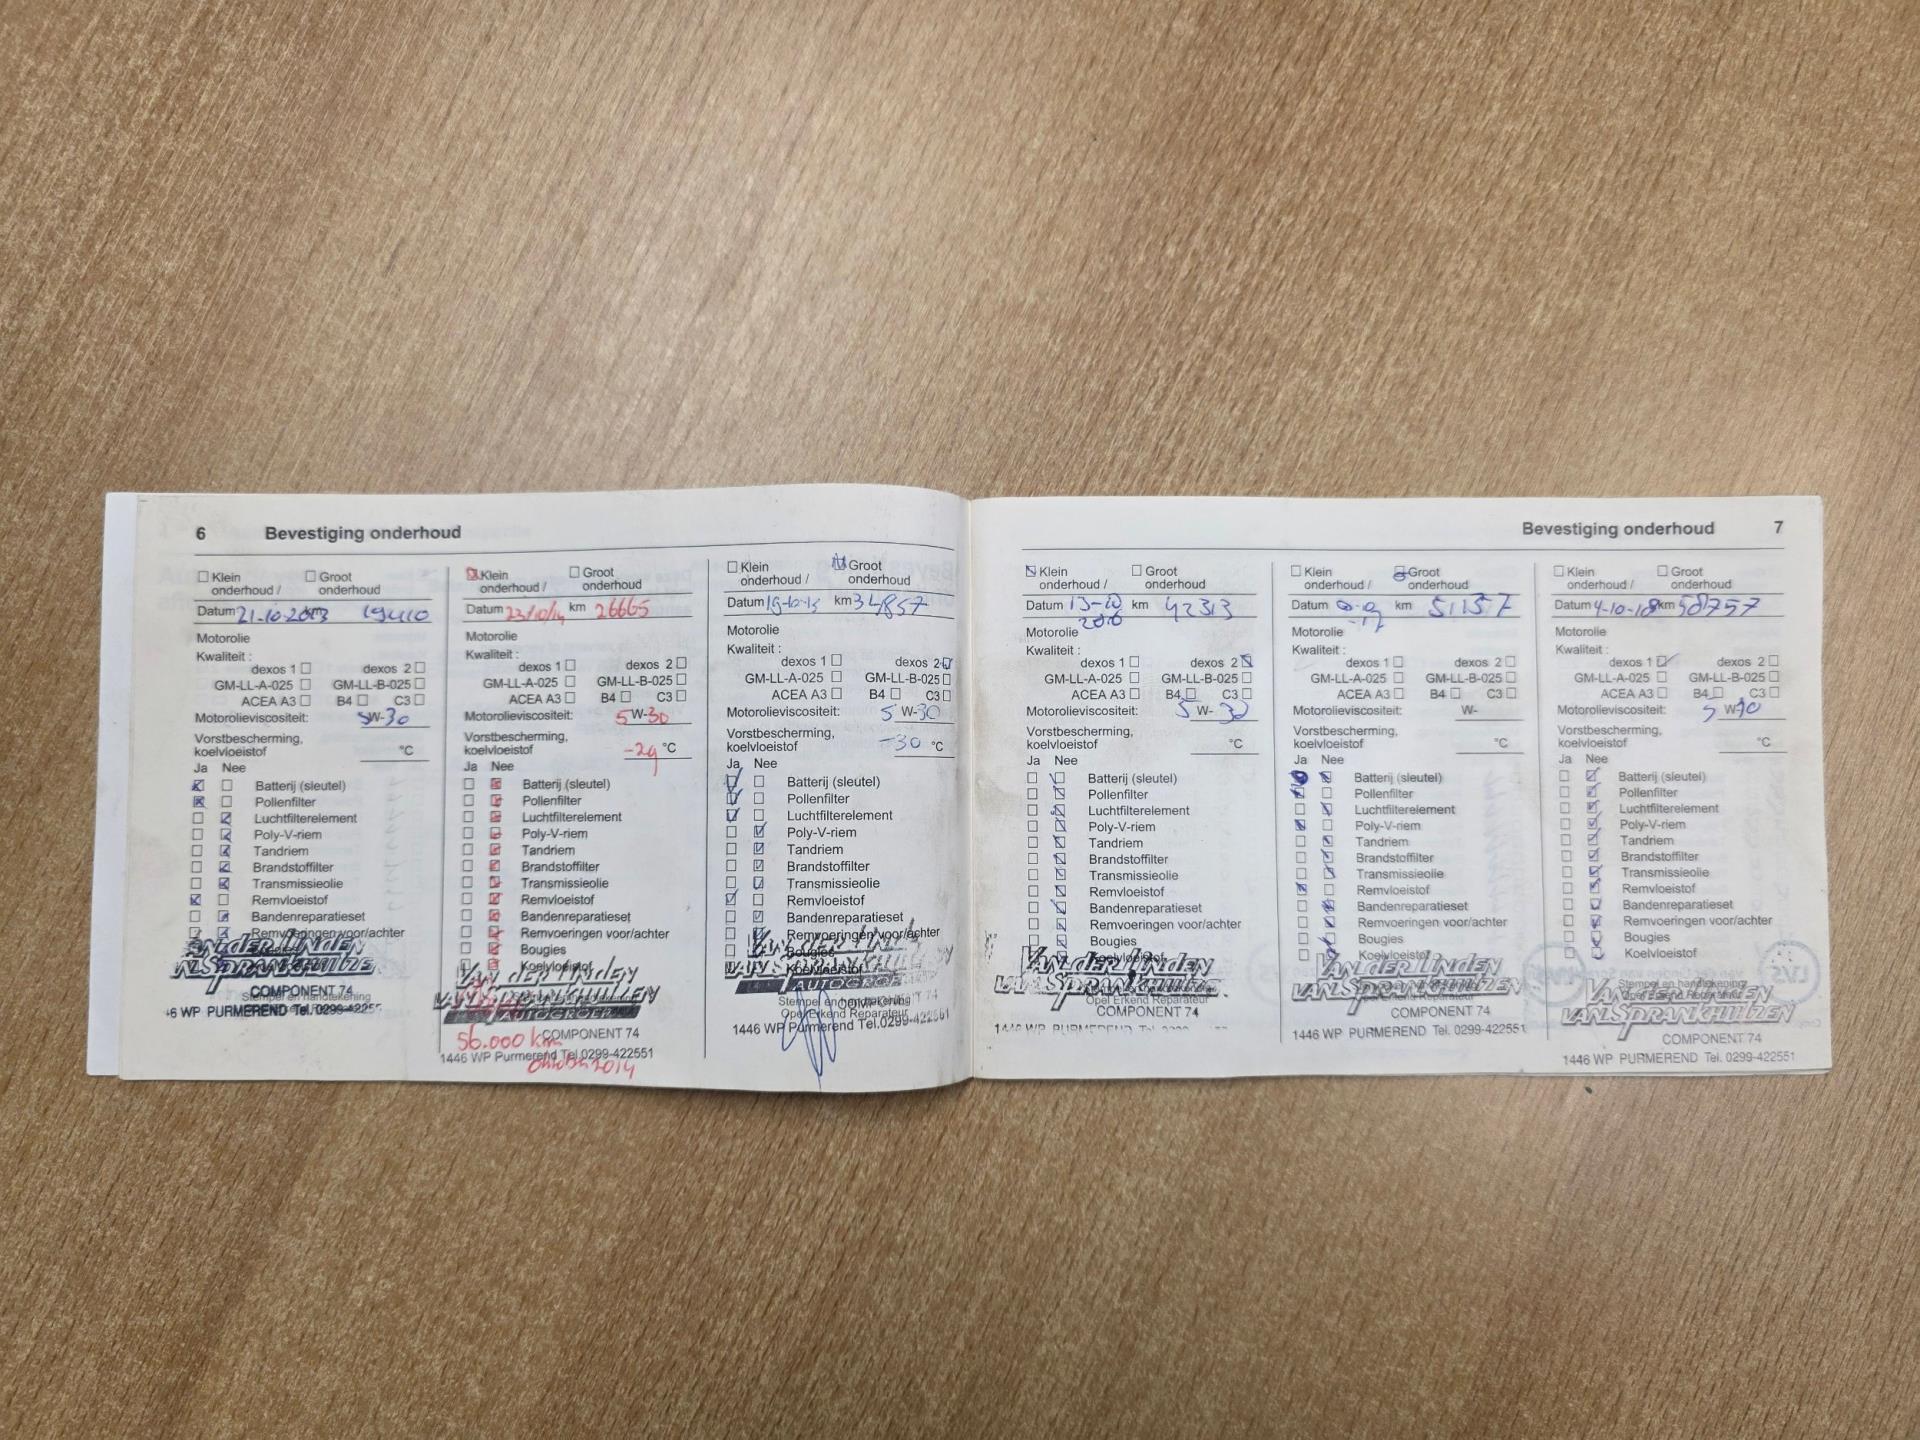 6 Bevestiging onderhoud
Klein onderhoud / Groot onderhoud
Datum 21-10-2013 km 19410
Motorolie
Kwaliteit :
dexos 1 dexos 2
GM-LL-A-025 GM-LL-B-025
ACEA A3 B4 C3
Motorolieviscositeit: 5W-30
Vorstbescherming,
koelvloeistof °C
Ja Nee
Batterij (sleutel)
Pollenfilter
Luchtfilterelement
Poly-V-riem
Tandriem
Brandstoffilter
Transmissieolie
Remvloeistof
Bandenreparatieset
Remvoeringen voor/achter
VAN DER LINDEN
VAN SPRANKHUIZEN
COMPONENT 74
Stempel en handtekening
PURMEREND Tel. 0299-42255
Klein onderhoud / Groot onderhoud
Datum 23/10/14 km 26665
Motorolie
Kwaliteit :
dexos 1 dexos 2
GM-LL-A-025 GM-LL-B-025
ACEA A3 B4 C3
Motorolieviscositeit: 5W-30
Vorstbescherming,
koelvloeistof -29 °C
Ja Nee
Batterij (sleutel)
Pollenfilter
Luchtfilterelement
Poly-V-riem
Tandriem
Brandstoffilter
Transmissieolie
Remvloeistof
Bandenreparatieset
Remvoeringen voor/achter
Bougies
Koelvloeistof
VAN DER LINDEN
VAN SPRANKHUIZEN
AUTOGROEP
56.000 km COMPONENT 74
1446 WP Purmerend Tel.0299-422551
oktober 2014
Klein onderhoud / Groot onderhoud
Datum 19-10-15 km 34857
Motorolie
Kwaliteit :
dexos 1 dexos 2
GM-LL-A-025 GM-LL-B-025
ACEA A3 B4 C3
Motorolieviscositeit: 5 W-30
Vorstbescherming,
koelvloeistof -30 °C
Ja Nee
Batterij (sleutel)
Pollenfilter
Luchtfilterelement
Poly-V-riem
Tandriem
Brandstoffilter
Transmissieolie
Remvloeistof
Bandenreparatieset
Remvoeringen voor/achter
Bougies
Koelvloeistof
VAN DER LINDEN
VAN SPRANKHUIZEN
AUTOGROEP
Stempel en handtekening
Opel Erkend Reparateur
1446 WP Purmerend Tel.0299-422551
Bevestiging onderhoud 7
Klein onderhoud / Groot onderhoud
Datum 13-10 km 42313
Motorolie
Kwaliteit :
dexos 1 dexos 2
GM-LL-A-025 GM-LL-B-025
ACEA A3 B4 C3
Motorolieviscositeit: 5 W-30
Vorstbescherming,
koelvloeistof °C
Ja Nee
Batterij (sleutel)
Pollenfilter
Luchtfilterelement
Poly-V-riem
Tandriem
Brandstoffilter
Transmissieolie
Remvloeistof
Bandenreparatieset
Remvoeringen voor/achter
Bougies
Koelvloeistof
VAN DER LINDEN
VAN SPRANKHUIZEN
Opel Erkend Reparateur
COMPONENT 74
Klein onderhoud / Groot onderhoud
Datum km 51157
Motorolie
Kwaliteit :
dexos 1 dexos 2
GM-LL-A-025 GM-LL-B-025
ACEA A3 B4 C3
Motorolieviscositeit: W-
Vorstbescherming,
koelvloeistof °C
Ja Nee
Batterij (sleutel)
Pollenfilter
Luchtfilterelement
Poly-V-riem
Tandriem
Brandstoffilter
Transmissieolie
Remvloeistof
Bandenreparatieset
Remvoeringen voor/achter
Bougies
Koelvloeistof
VAN DER LINDEN
VAN SPRANKHUIZEN
COMPONENT 74
1446 WP PURMEREND Tel. 0299-422551
Klein onderhoud / Groot onderhoud
Datum 4-10-18 km 58757
Motorolie
Kwaliteit :
dexos 1 dexos 2
GM-LL-A-025 GM-LL-B-025
ACEA A3 B4 C3
Motorolieviscositeit: 5 W-
Vorstbescherming,
koelvloeistof °C
Ja Nee
Batterij (sleutel)
Pollenfilter
Luchtfilterelement
Poly-V-riem
Tandriem
Brandstoffilter
Transmissieolie
Remvloeistof
Bandenreparatieset
Remvoeringen voor/achter
Bougies
Koelvloeistof
LVS
Stempel en handtekening
Opel Erkend Reparateur
VAN DER LINDEN
VAN SPRANKHUIZEN
COMPONENT 74
1446 WP PURMEREND Tel. 0299-422551